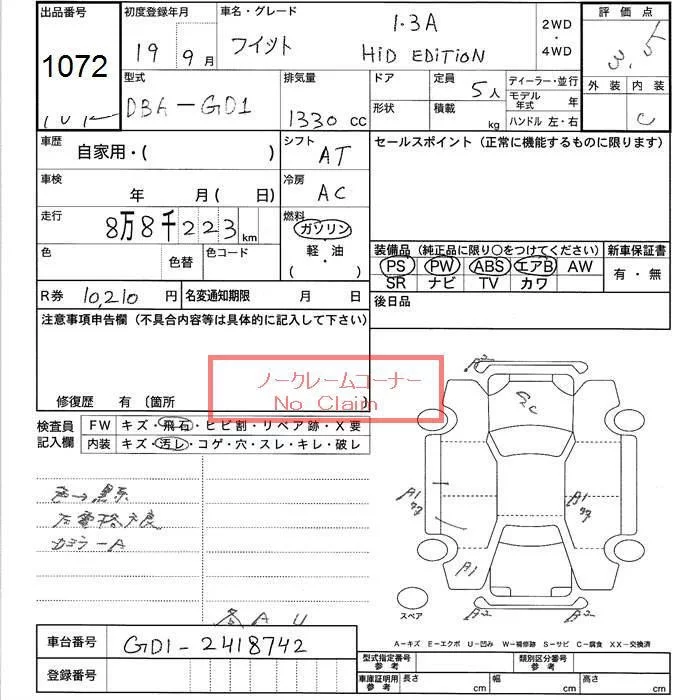 出品番号 初度登録年月 車名・グレード 評価点
1072 19 9月 フィット 1.3A 2WD・4WD 3.5
HiD EDiTiON
型式 排気量 ドア 定員 5人 ディーラー・並行 外装 内装
DBA-GD1 1330 cc 形状 積載 kg モデル年式 年 C
ハンドル 左・右
車歴 自家用・( ) シフト AT セールスポイント (正常に機能するものに限ります)
車検 年 月( 日) 冷房 AC
走行 8万8千223km 燃料 ガソリン
軽・油
( ・ )
色 色替 色コード
装備品 (純正品に限り〇をつけてください) 新車保証書
PS PW ABS エアB AW 有・無
SR ナビ TV カワ
R券 10210 円 名変通知期限 月 日 後日品
注意事項申告欄 (不具合内容等は具体的に記入して下さい)
ノークレームコーナー
No Claim
修復歴 有 〔箇所
検査員記入欄 FW キズ・飛石・ヒビ割・リペア跡・X要
内装 キズ・汚レ・コゲ・穴・スレ・キレ・破レ
A2
G2C
A1 A1
A1
色→黒系
カラーA
スペア A2 A2
A A U
A-キズ E-エクボ U-凹み W-補修跡 S-サビ C-腐食 XX-交換済
車台番号 GD1-2418742
登録番号
型式指定番号 参考 類別区分番号 参考
車庫証明用 参考 長さ cm 幅 cm 高さ cm